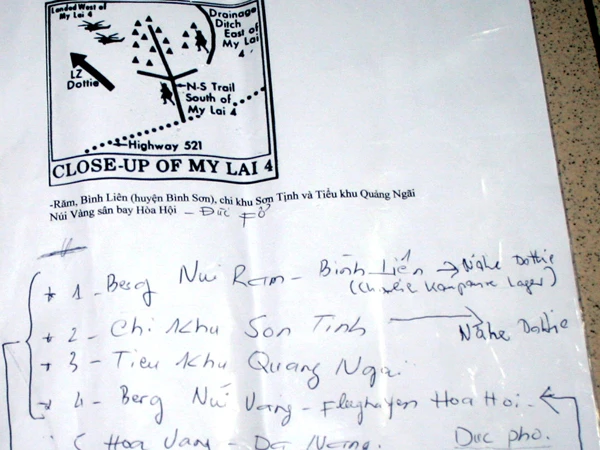 Landed West of
My Lai 4
Drainage
Ditch
East of
My Lai
4
LZ
Dottie
N-S Trail
South of
My Lai 4
Highway 521
CLOSE-UP OF MY LAI 4
-Răm, Bình Liên (huyện Bình Sơn), chi khu Sơn Tịnh và Tiểu khu Quảng Ngãi
Núi Vàng sân bay Hòa Hội - Đức Phổ
* 1 - Berg Núi Ram - Bình Liên → Nähe Dottie
(Charlie Kompanie Lager)
* 2 - Chi Khu Son Tinh → Nähe Dottie
* 3 - Tieu Khu Quang Ngai
* 4 - Berg Nứ Vang - Flughafen Hoa Hoi -
Hoa Vang - Da Nang. Duc pho.